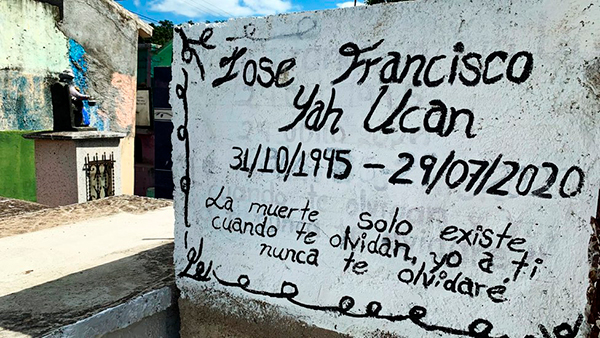 Jose Francisco
Yah Ucan
31/10/1945 - 29/07/2020
La muerte solo existe
cuando te olvidan, yo a ti
nunca te olvidaré